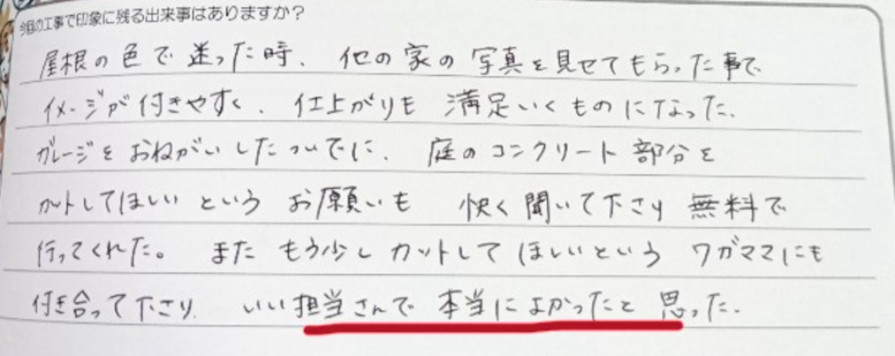 今回の工事で印象に残る出来事はありますか？
屋根の色で迷った時、他の家の写真を見せてもらった事で
イメージが付きやすく、仕上がりも満足いくものになった。
ガレージをおねがいしたついでに、庭のコンクリート部分を
カットしてほしいというお願いも快く聞いて下さり無料で
行ってくれた。またもう少しカットしてほしいというワガママにも
付き合って下さり、いい担当さんで本当によかったと思った。